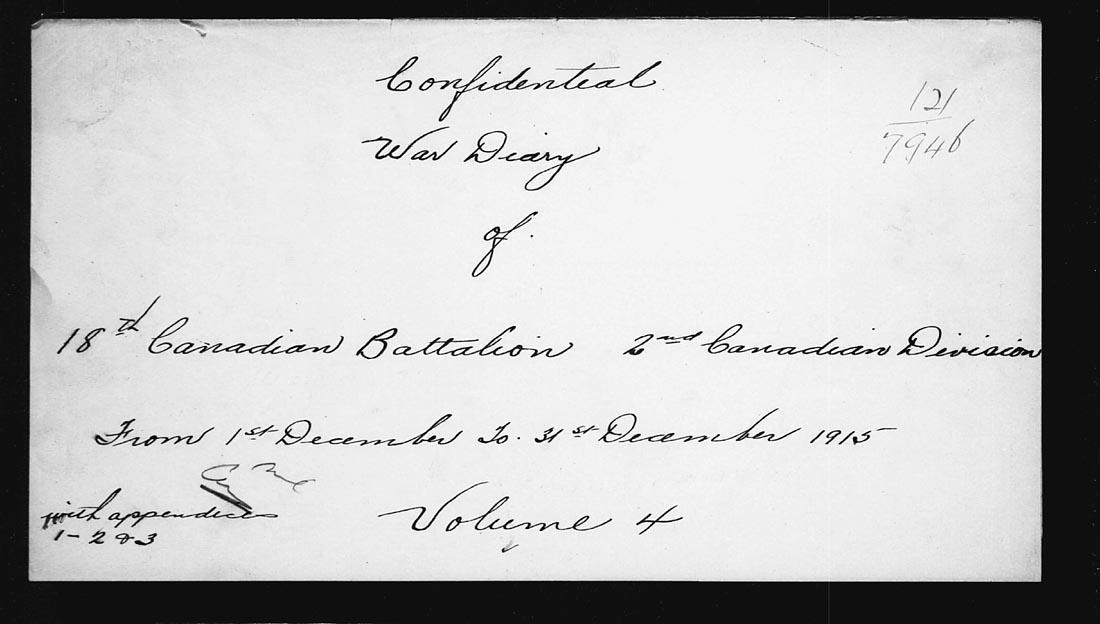 Confidential
121
7946
War Diary
of
18th Canadian Battalion 2nd Canadian Division
From 1st December To. 31st December 1915
with appendices
1-2 & 3
Volume 4